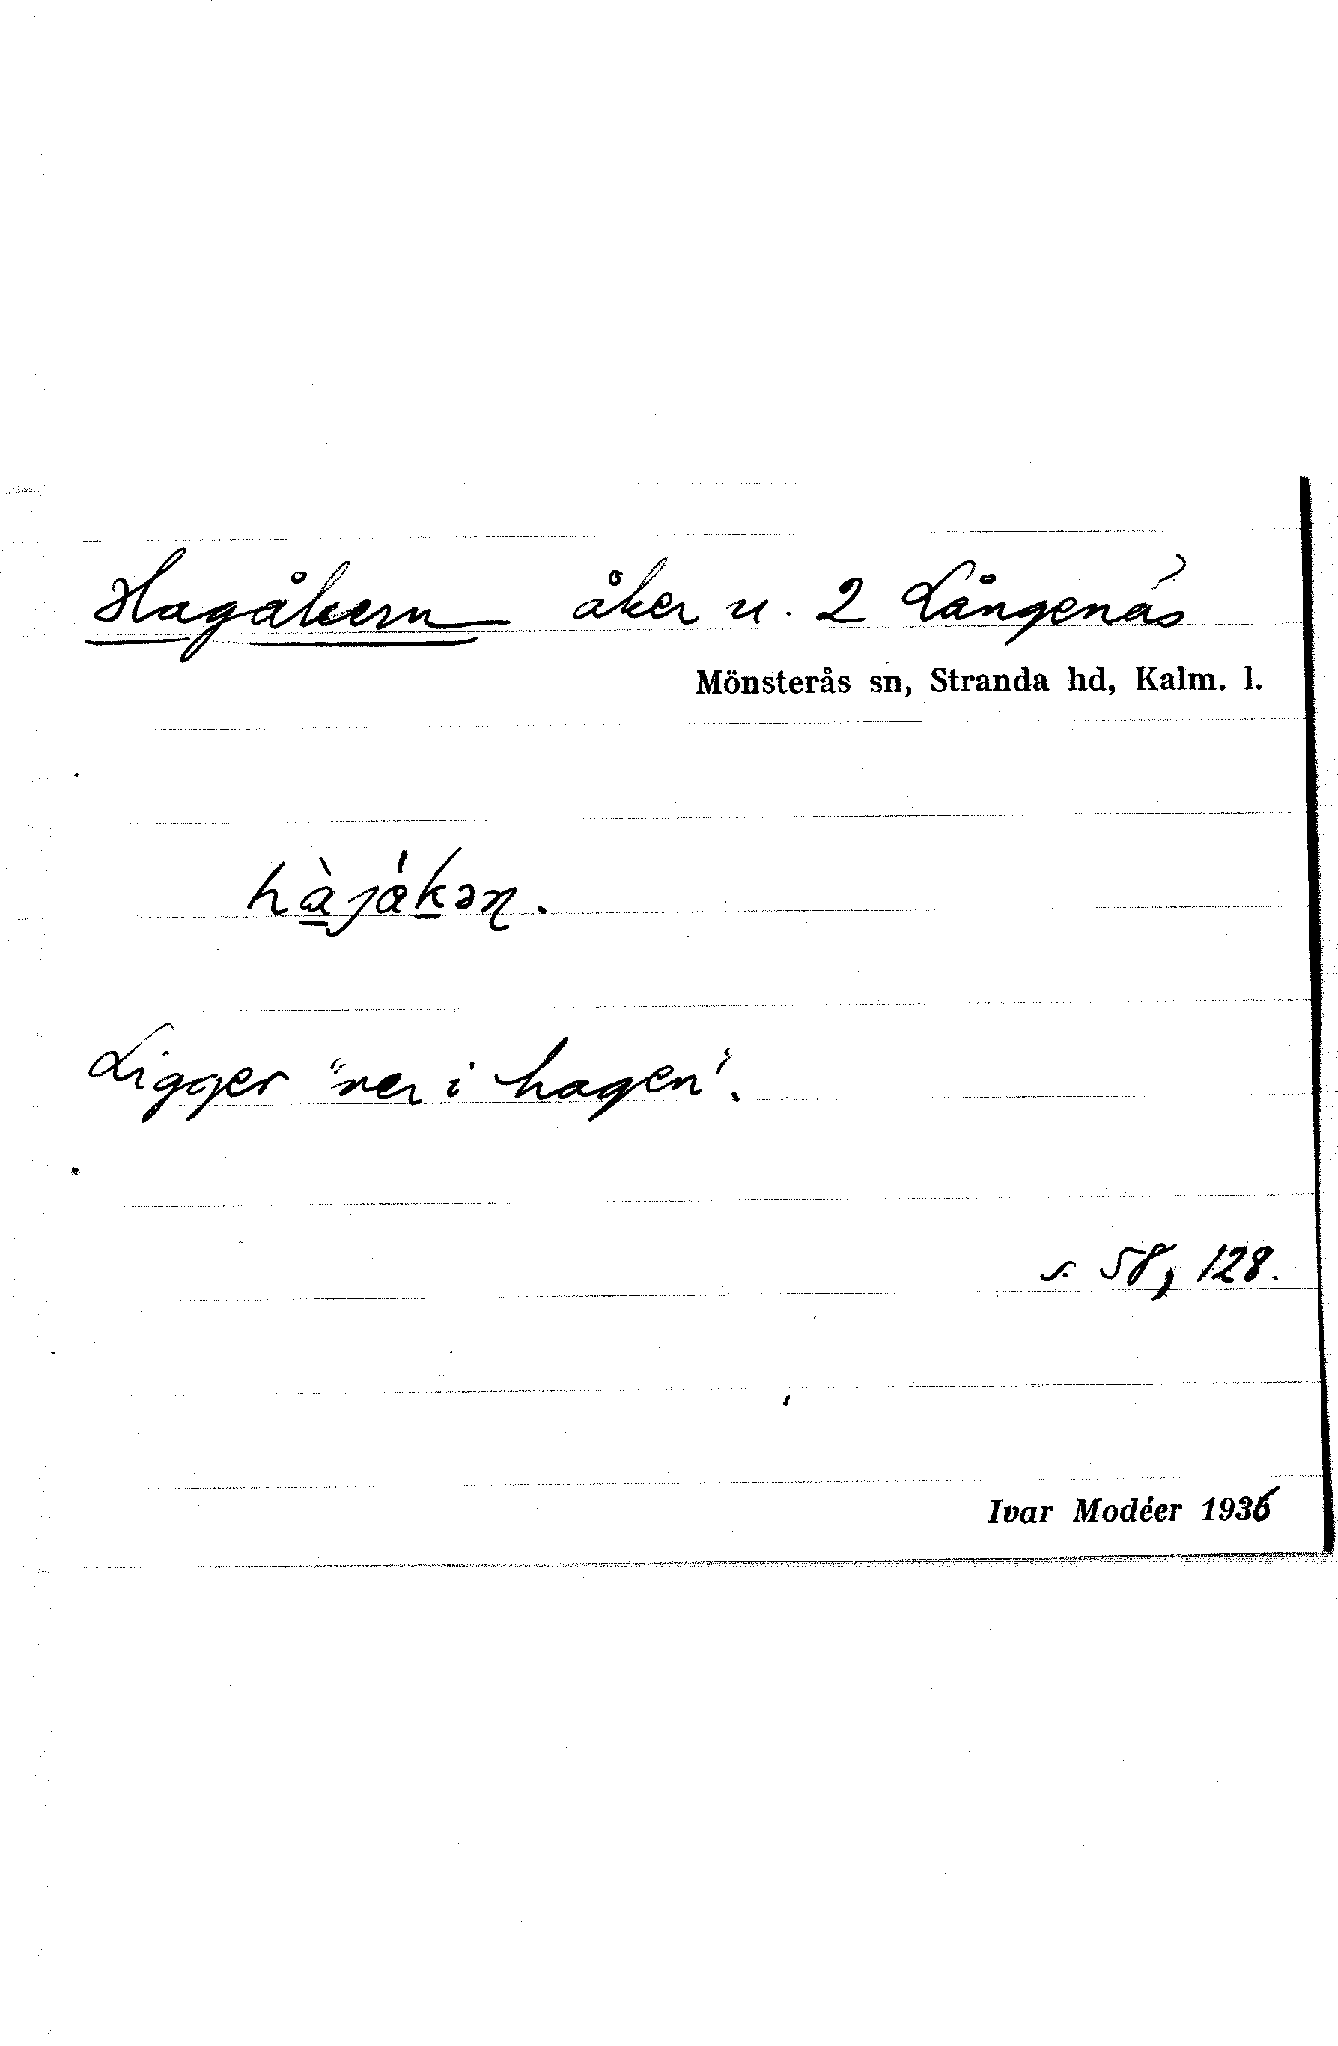 Hagåkern åker u. 2 Långenäs
Mönsterås sn, Stranda hd, Kalm. l.
hàjákəɳ.
Ligger "ner i hagen".
s. 58, 128.
Ivar Modéer 1936